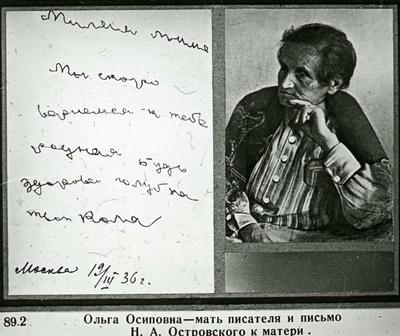 Милая мама
Мы скоро
вернемся к тебе
родная будь
здорова голубка
твой Коля
Москва 19/III 36 г.
89.2 Ольга Осиповна—мать писателя и письмо
Н. А. Островского к матери.